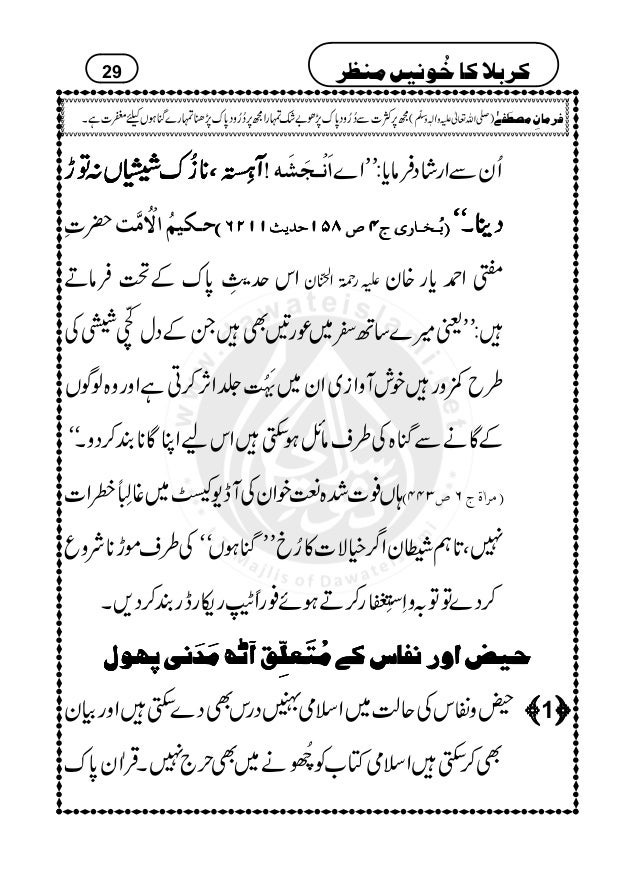 کربلا کا خُونیں منظر
29
فرمانِ مصطَفٰے (صلی اللہ تعالیٰ علیہ والہٖ وسلّم) مجھ پر کثرت سے دُرُود پاک پڑھو بے شک تمہارا مجھ پر دُرُود پاک پڑھنا تمہارے گناہوں کیلئے مغفرت ہے۔
اُن سے ارشاد فرمایا: ’’اے اَنْجَشَہ! آہِستہ، نازُک شیشیاں نہ توڑ
دینا۔‘‘ (بُخاری ج۴ ص ۱۵۸ حدیث ۶۲۱۱) حکیمُ الْاُمَّت حضرتِ
مفتی احمد یار خان علیہ رحمۃ الحنّان اس حدیثِ پاک کے تحت فرماتے
ہیں: ’’یعنی میرے ساتھ سفر میں عورَتیں بھی ہیں جن کے دل کچّی شیشی کی
طرح کمزور ہیں خوش آوازی ان میں بَہُت جلد اثر کرتی ہے اور وہ لوگوں
کے گانے سے گناہ کی طرف مائل ہو سکتی ہیں اس لیے اپنا گانا بند کر دو۔‘‘
(مراٰۃ ج ۶ ص ۴۴۳) ہاں فوت شدہ نعت خوان کی آڈیو کیسٹ میں غالِباً خطرات
نہیں، تاہم شیطان اگر خیالات کا رُخ ’’گناہوں‘‘ کی طرف موڑنا شروع
کر دے تو توبہ و اِستِغفار کرتے ہوئے فوراً ٹیپ ریکارڈر بند کر دیں۔
حیض اور نفاس کے مُتَعلِّق آٹھ مَدَنی پھول
﴿1﴾ حیض و نفاس کی حالت میں اسلامی بہنیں درس بھی دے سکتی ہیں اور بیان
بھی کر سکتی ہیں اسلامی کتاب کو چُھونے میں بھی حرج نہیں۔ قراٰن پاک
www.dawateislami.net
Majlis of DawateIslami